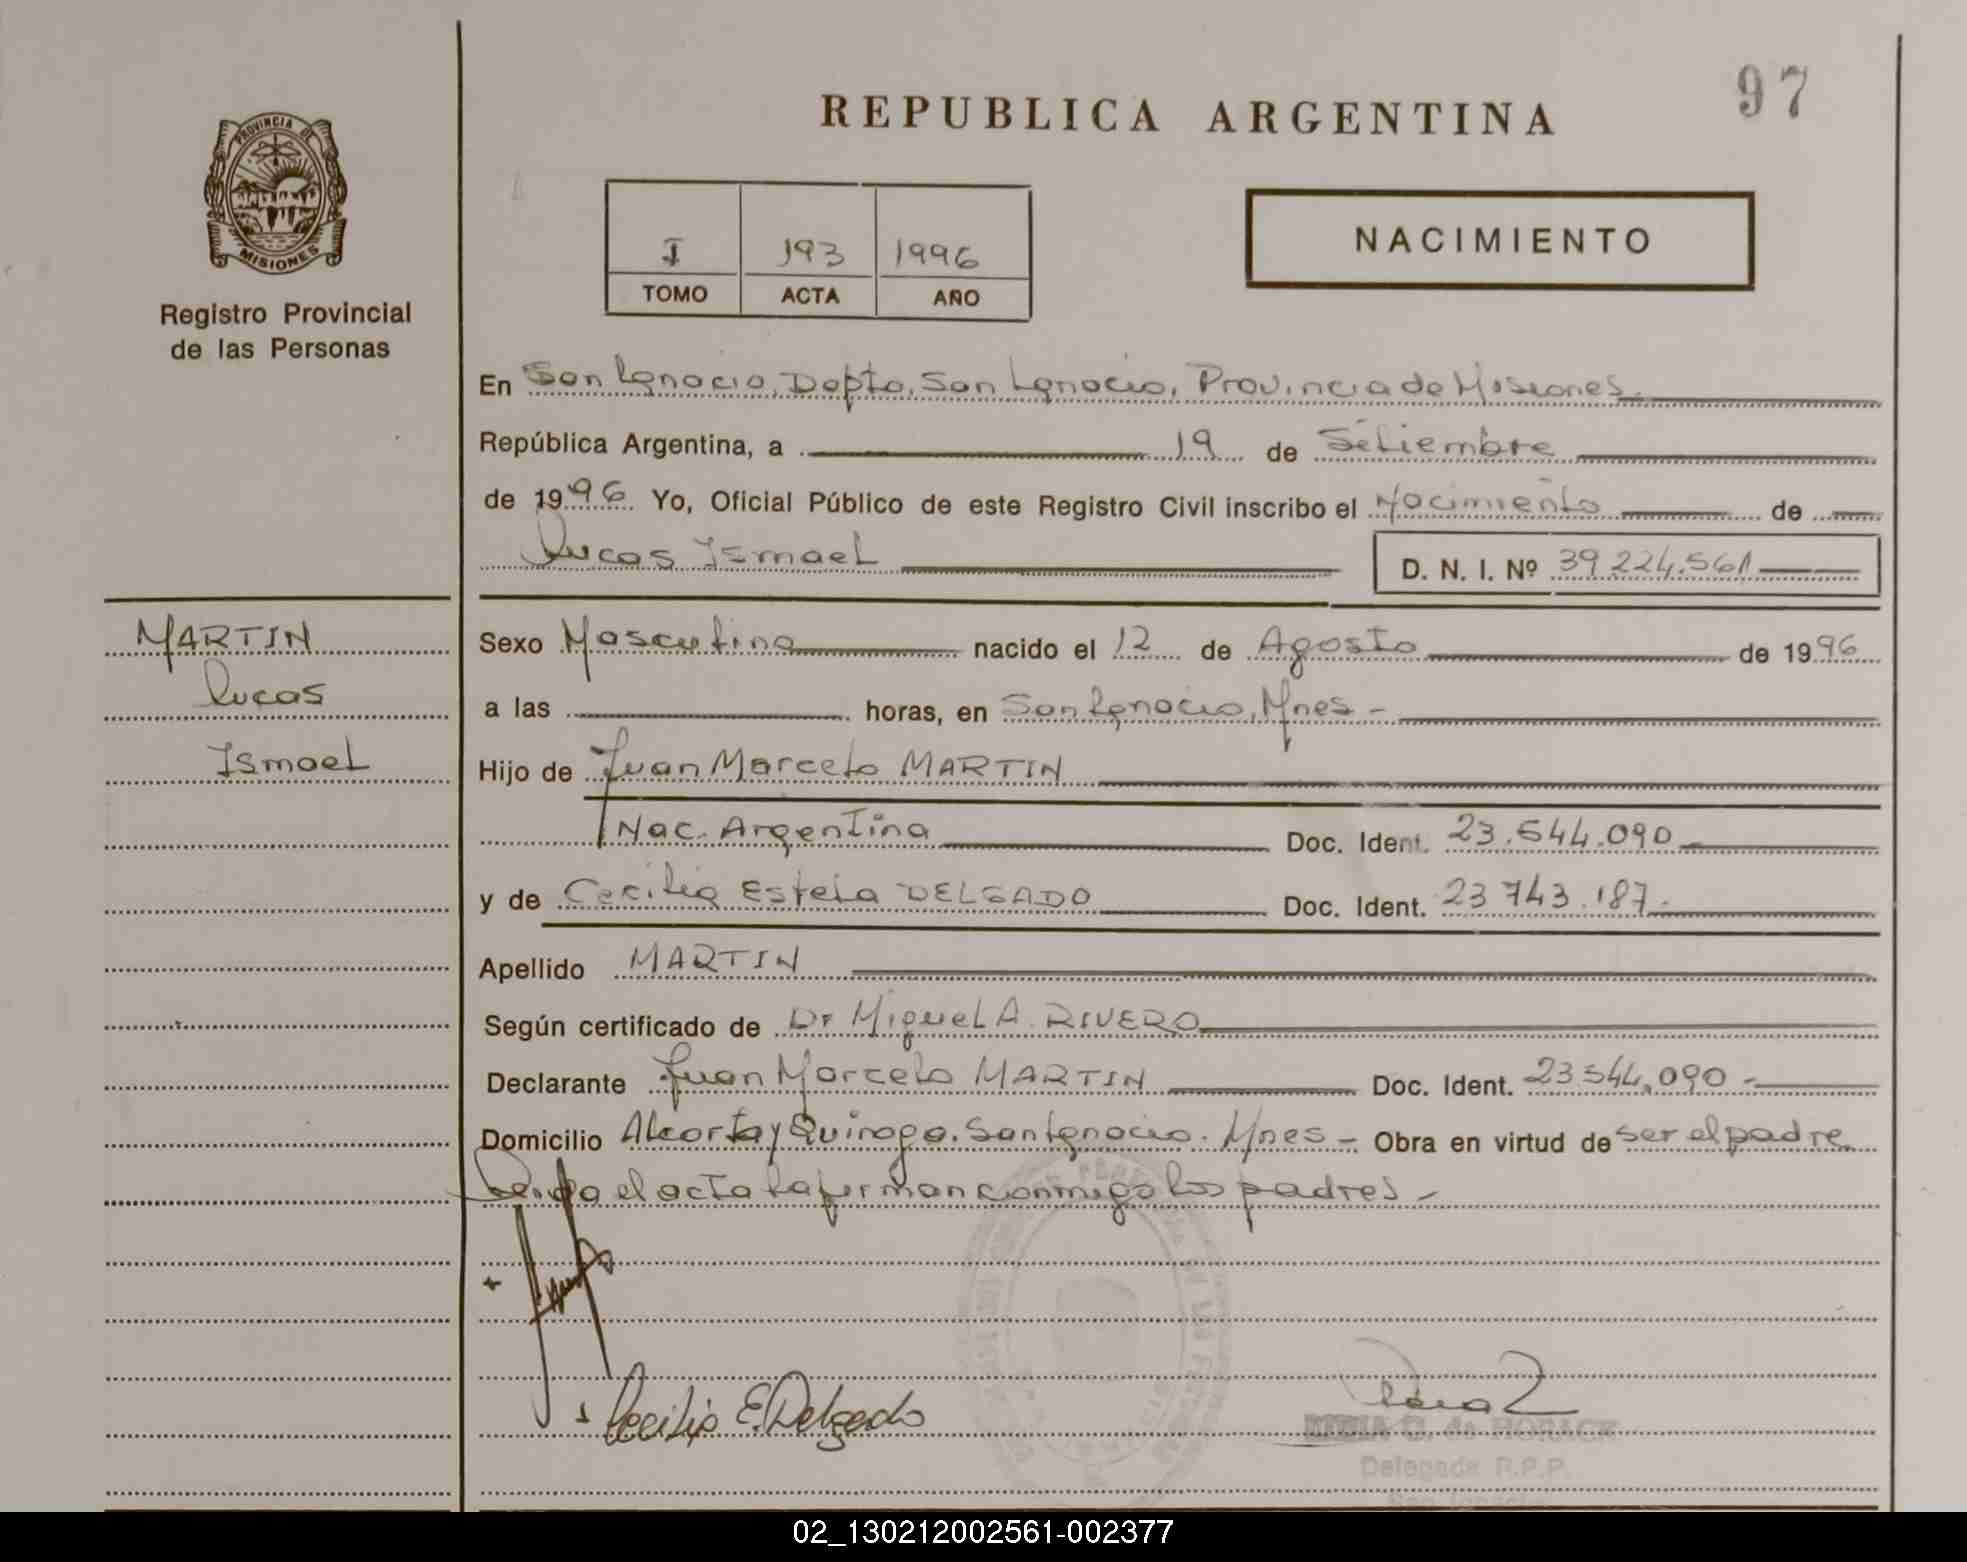 97
REPUBLICA ARGENTINA
PROVINCIA DE
MISIONES
Registro Provincial
de las Personas
I 193 1996
TOMO ACTA AÑO
NACIMIENTO
En San Ignacio, Dopto. San Ignacio, Provincia de Misiones.
República Argentina, a 19 de Setiembre
de 1996 Yo, Oficial Público de este Registro Civil inscribo el Nacimiento de
Lucas Ismael D. N. I. Nº 39.224.561
MARTIN
Lucas
Ismael
Sexo Masculino nacido el 12 de Agosto de 1996
a las horas, en San Ignacio, Mnes -
Hijo de Juan Marcelo MARTIN
Nac. Argentina Doc. Ident. 23.544.090
y de Cecilia Estela DELGADO Doc. Ident. 23 743.187.
Apellido MARTIN
Según certificado de Dr Miguel A. RIVERO
Declarante Juan Marcelo MARTIN Doc. Ident. 23544.090 -
Domicilio Alcorta y Quiroga. San Ignacio. Mnes - Obra en virtud de ser el padre
el acta la firman conmigo los padres -
Cecilia E. Delgado
C. de HORACK
Delegada R.P.P.
San Ignacio
02_130212002561-002377